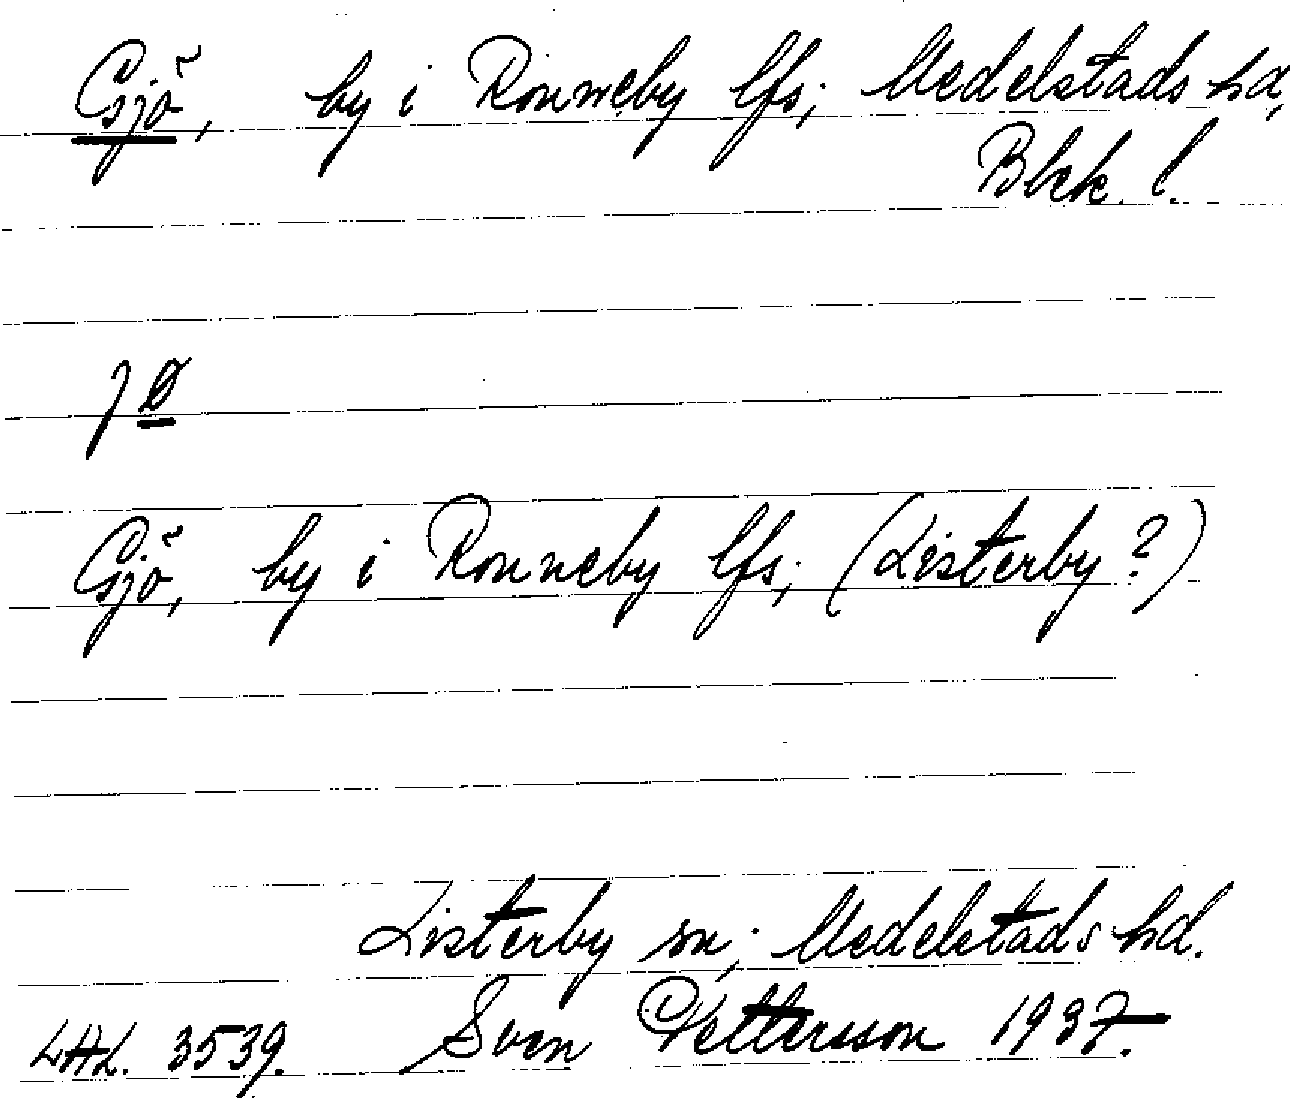 Gjö, by i Ronneby lfs; Medelstads hd,
Blek. l.
jø
Gjö, by i Ronneby lfs; (Listerby?)
Listerby sn; Medelstads hd.
LAL. 3539. Sven Pettersson 1937.